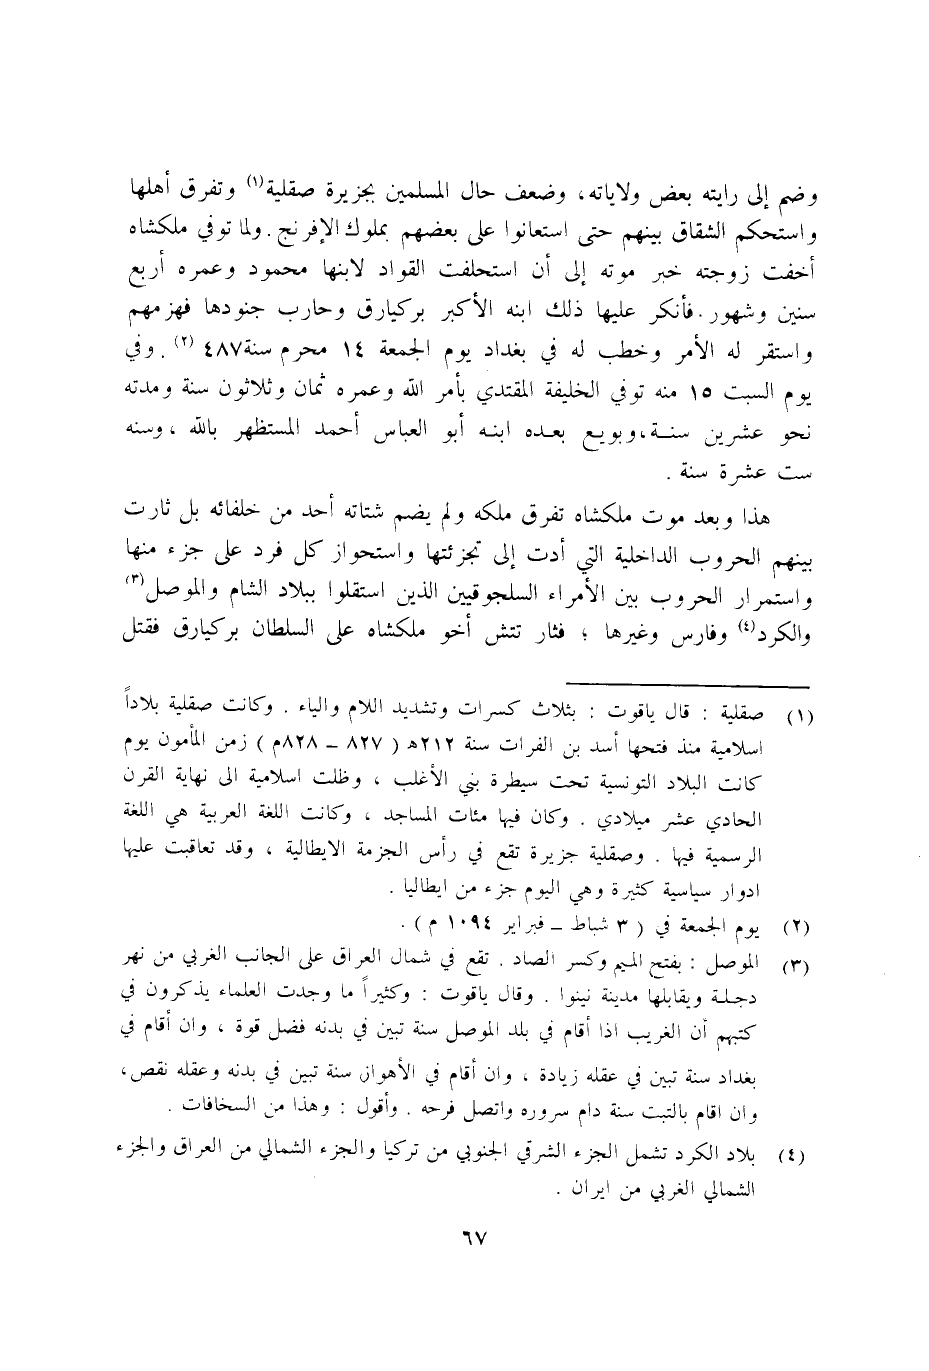 وضم إلى رايته بعض ولاياته، وضعف حال المسلمين بجزيرة صقلية(١) وتفرق أهلها
واستحكم الشقاق بينهم حتى استعانوا على بعضهم بملوك الإفرنج. ولما توفي ملكشاه
أخفت زوجته خبر موته إلى أن استحلفت القواد لابنها محمود وعمره أربع
سنين وشهور. فأنكر عليها ذلك ابنه الأكبر بركيارق وحارب جنودها فهزمهم
واستقر له الأمر وخطب له في بغداد يوم الجمعة ١٤ محرم سنة ٤٨٧ (٢). وفي
يوم السبت ١٥ منه توفي الخليفة المقتدي بأمر الله وعمره ثمان وثلاثون سنة ومدته
نحو عشرين سنة، وبويع بعده ابنه أبو العباس أحمد المستظهر بالله، وسنه
ست عشرة سنة .
هذا وبعد موت ملكشاه تفرق ملكه ولم يضم شتاته أحد من خلفائه بل ثارت
بينهم الحروب الداخلية التي أدت إلى تجزئتها واستحواز كل فرد على جزء منها
واستمرار الحروب بين الأمراء السلجوقيين الذين استقلوا ببلاد الشام والموصل(٣)
والكرد(٤) وفارس وغيرها ؛ فثار تتش أخو ملكشاه على السلطان بركيارق فقتل
(١) صقلية : قال ياقوت : بثلاث كسرات وتشديد اللام والياء . وكانت صقلية بلاداً
اسلامية منذ فتحها أسد بن الفرات سنة ٢١٢ه ( ٨٢٧ ــ ٨٢٨م ) زمن المأمون يوم
كانت البلاد التونسية تحت سيطرة بني الأغلب ، وظلت اسلامية الى نهاية القرن
الحادي عشر ميلادي . وكان فيها مئات المساجد ، وكانت اللغة العربية هي اللغة
الرسمية فيها . وصقلية جزيرة تقع في رأس الجزمة الايطالية ، وقد تعاقبت عليها
ادوار سياسية كثيرة وهي اليوم جزء من ايطاليا .
(٢) يوم الجمعة في ( ٣ شباط ــ فبراير ١٠٩٤ م ) .
(٣) الموصل : بفتح الميم وكسر الصاد . تقع في شمال العراق على الجانب الغربي من نهر
دجلة ويقابلها مدينة نينوا . وقال ياقوت : وكثيراً ما وجدت العلماء يذكرون في
كتبهم أن الغريب اذا أقام في بلد الموصل سنة تبين في بدنه فضل قوة ، وان أقام في
بغداد سنة تبين في عقله زيادة ، وان أقام في الأهواز سنة تبين في بدنه وعقله نقص،
وان اقام بالتبت سنة دام سروره واتصل فرحه . وأقول : وهذا من السخافات .
(٤) بلاد الكرد تشمل الجزء الشرقي الجنوبي من تركيا والجزء الشمالي من العراق والجزء
الشمالي الغربي من ايران .
٦٧